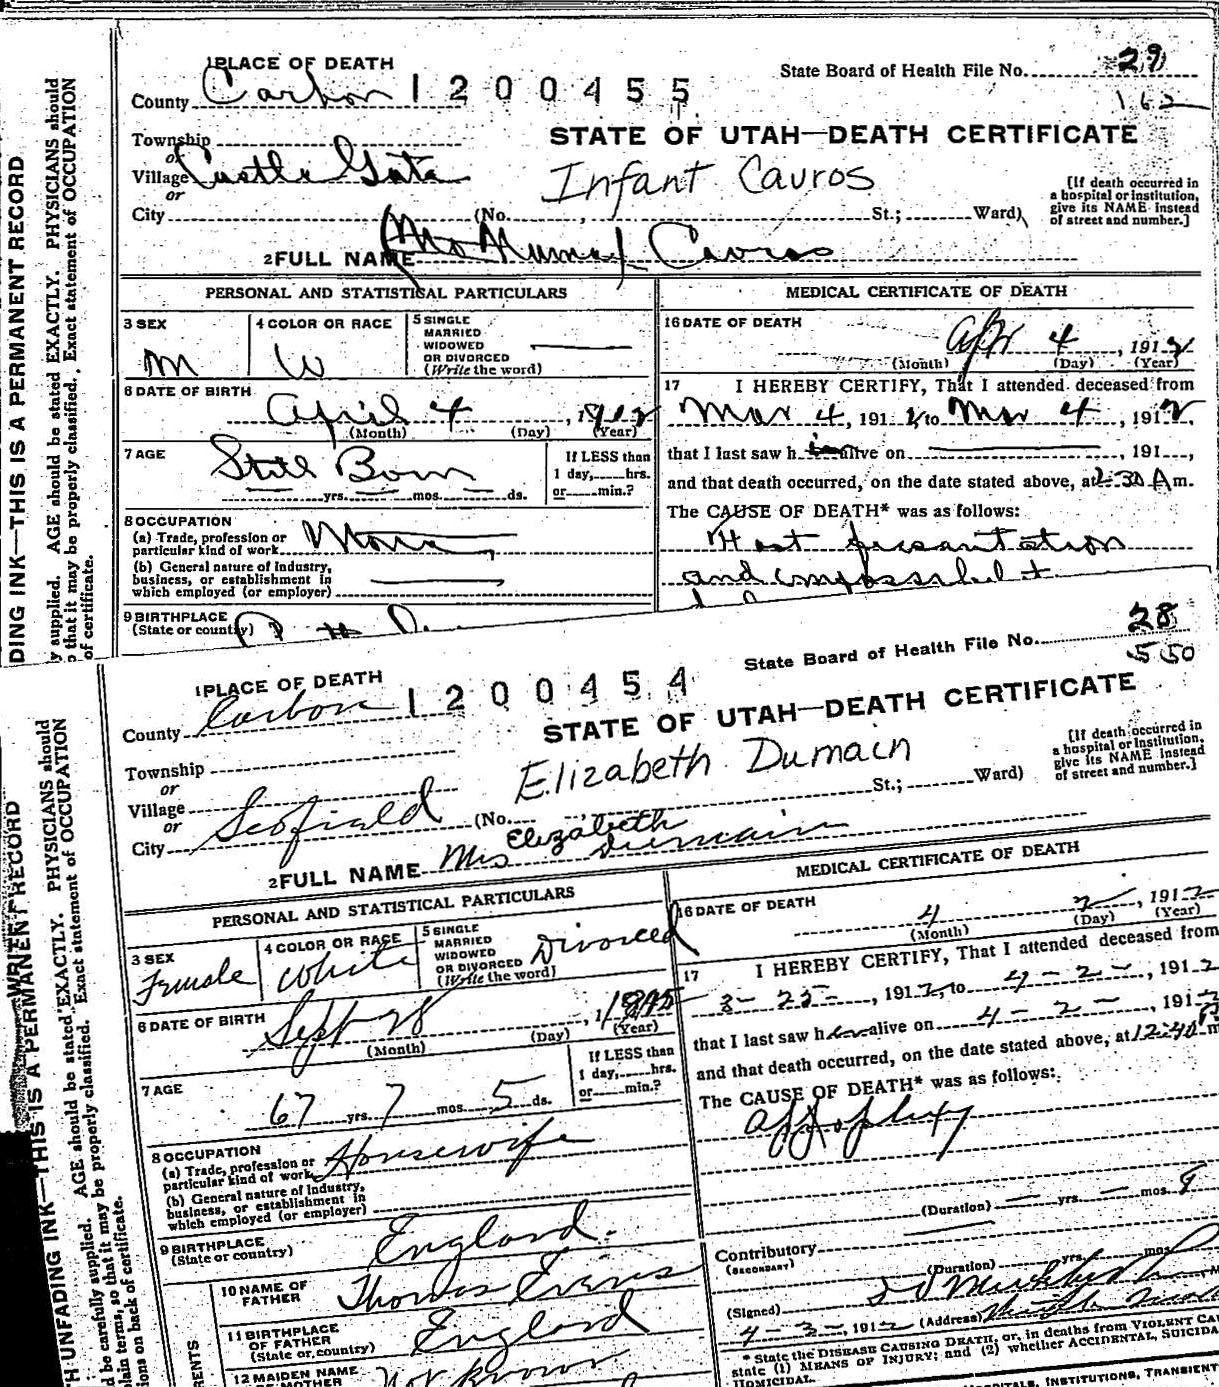 1 PLACE OF DEATH
State Board of Health File No. 29
County Carbon 1 2 0 0 4 5 5
162
Township
or
STATE OF UTAH—DEATH CERTIFICATE
Village Castle Gate
Infant Cavros
or
[If death occurred in
a hospital or institution,
give its NAME instead
of street and number.]
City (No. , St.; Ward)
2 FULL NAME Cavros
PERSONAL AND STATISTICAL PARTICULARS
MEDICAL CERTIFICATE OF DEATH
3 SEX
M
4 COLOR OR RACE
W
5 SINGLE
MARRIED
WIDOWED
OR DIVORCED
(Write the word)
16 DATE OF DEATH
Apr 4, 1912
(Month) (Day) (Year)
6 DATE OF BIRTH
April 4, 1912
(Month) (Day) (Year)
17 I HEREBY CERTIFY, That I attended deceased from
Mar 4, 1912, to Mar 4, 1912,
that I last saw him alive on , 191 ,
and that death occurred, on the date stated above, at 2:30 A m.
The CAUSE OF DEATH* was as follows:
presentation
and
7 AGE
Still Born
yrs. mos. ds.
If LESS than
1 day, hrs.
or min.?
8 OCCUPATION
(a) Trade, profession or
particular kind of work None
(b) General nature of industry,
business, or establishment in
which employed (or employer)
9 BIRTHPLACE
(State or country)
DING INK—THIS IS A PERMANENT RECORD
y supplied. AGE should be stated EXACTLY. PHYSICIANS should
o that it may be properly classified. Exact statement of OCCUPATION
of certificate.
1 PLACE OF DEATH
State Board of Health File No. 28
550
County Carbon 1 2 0 0 4 5 4
STATE OF UTAH—DEATH CERTIFICATE
Township
or
Elizabeth Dumain
[If death occurred in
a hospital or institution,
give its NAME instead
of street and number.]
Village
or Scofield
City (No. St.; Ward)
2 FULL NAME Mrs Elizabeth Dumain
PERSONAL AND STATISTICAL PARTICULARS
MEDICAL CERTIFICATE OF DEATH
3 SEX
Female
4 COLOR OR RACE
White
5 SINGLE
MARRIED
WIDOWED
OR DIVORCED
(Write the word)
Divorced
16 DATE OF DEATH
4 2, 1912
(Month) (Day) (Year)
6 DATE OF BIRTH
Sept 28
(Month) (Day) (Year)
17 I HEREBY CERTIFY, That I attended deceased from
3-25-, 1912, to 4-2-, 1912
that I last saw her alive on 4-2-, 191
and that death occurred, on the date stated above, at 12:40 P m
The CAUSE OF DEATH* was as follows:
Apoplexy
(Duration) yrs. mos. 9
Contributory
(SECONDARY)
(Duration) yrs. mos.
(Signed)
4-3-, 1912 (Address)
* State the DISEASE CAUSING DEATH; or, in deaths from VIOLENT CA
state (1) MEANS OF INJURY; and (2) whether ACCIDENTAL, SUICIDA
HOMICIDAL.
PITALS, INSTITUTIONS, TRANSIENT
7 AGE
67 yrs. 7 mos. 5 ds.
If LESS than
1 day, hrs.
or min.?
8 OCCUPATION
(a) Trade, profession or
particular kind of work Housewife
(b) General nature of industry,
business, or establishment in
which employed (or employer)
9 BIRTHPLACE
(State or country) England.
10 NAME OF
FATHER Thomas Evans
11 BIRTHPLACE
OF FATHER
(State or country) England
12 MAIDEN NAME
OF MOTHER Not known
RENTS
WRITE
H UNFADING INK—THIS IS A PERMANENT RECORD
d be carefully supplied. AGE should be stated EXACTLY. PHYSICIANS should
lain terms, so that it may be properly classified. Exact statement of OCCUPATION
ions on back of certificate.